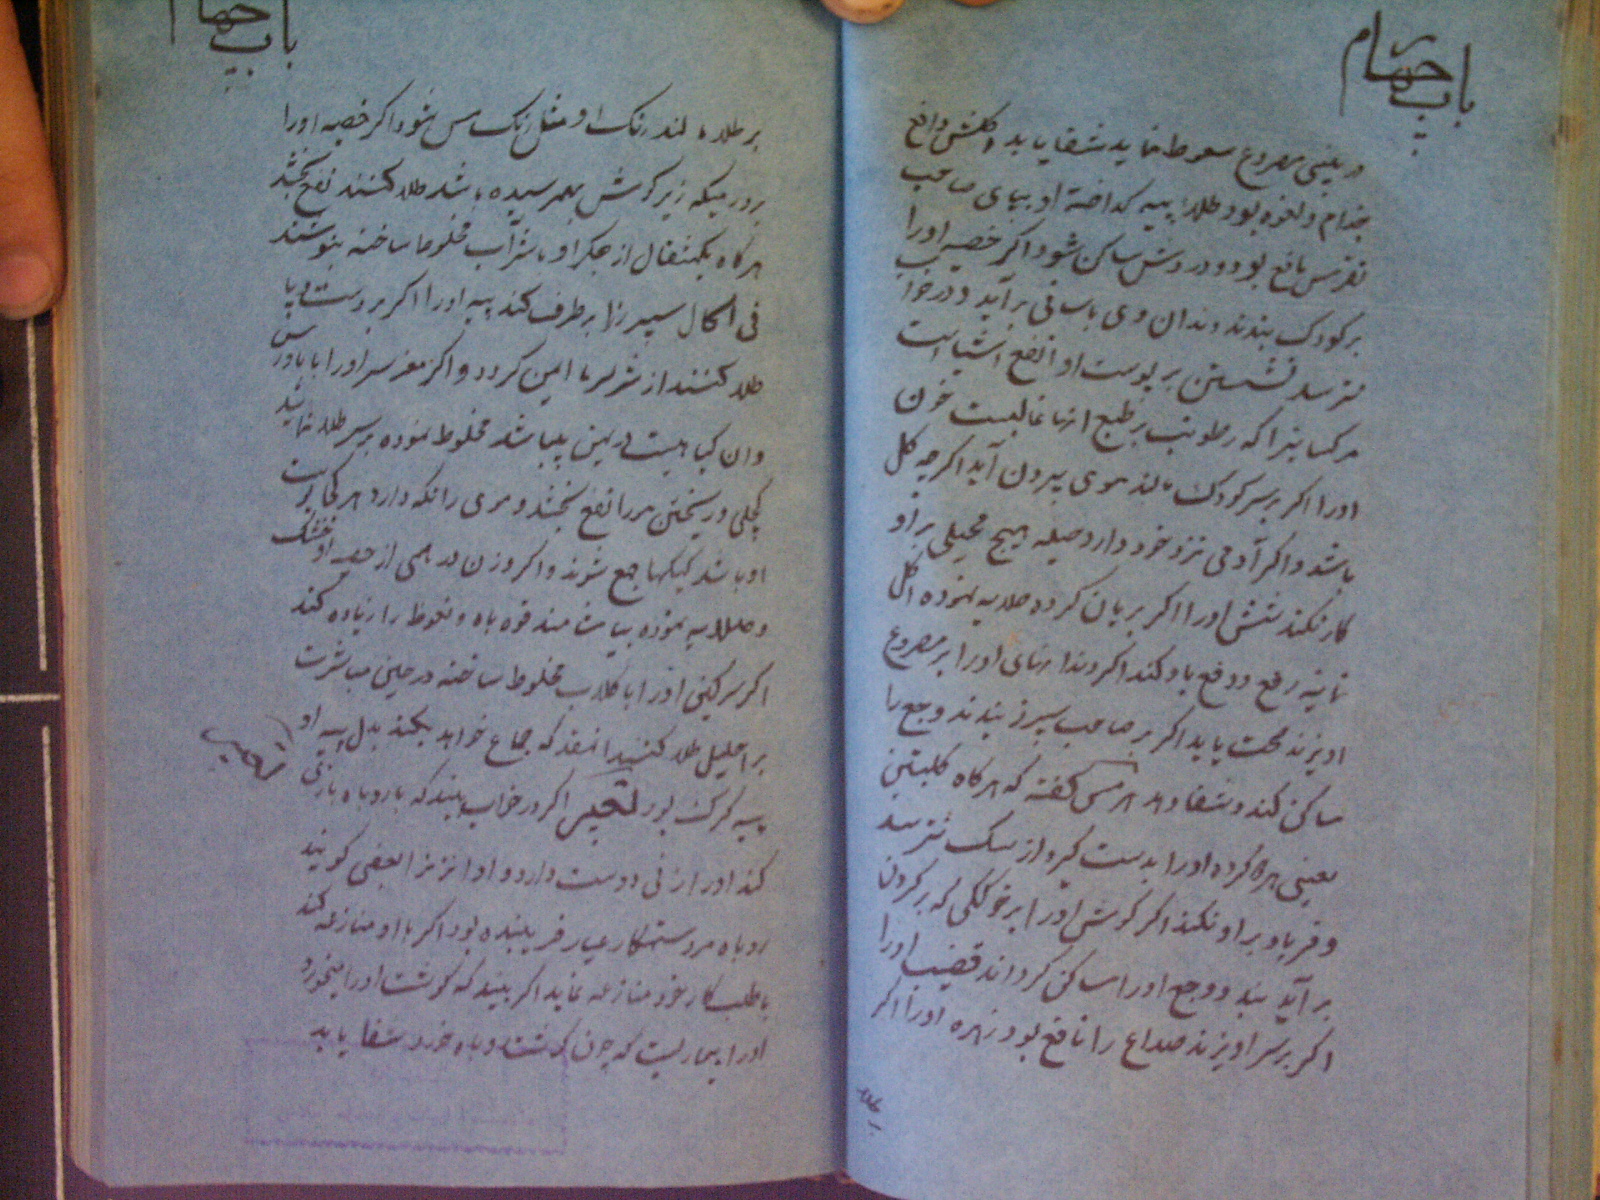 باب چهارم
در بینی مصروع سعوط نماید شفا یابد اکلش دافع
جذام و لقوه بود و طلاء پیه کداخته او بپای صاحب
نقرس نافع بود و دردش ساکن شود اکر خصیه اورا
بر کودک بندند دندان وی باسانی برآید و در خواب
نترسد نشستن بر پوست او انفع اشیا است
مر کسانیرا که رطوبت بر طبع انها غالبست خون
اورا اکر بر سر کودک مالند موی بیرون آید اکرچه کل
باشد و اکر آدمی نزد خود دارد حیله هیچ محیلی بر او
کار نکند ششش اورا اکر بریان کرده صلایه نموده اکل
نمایند رفع و دفع باد کند اکر دندانهای اورا بر مصروع
اویزند صحت یابد اکر بر صاحب سپرز بندند وجع را
ساکن کند و شفا دهد هرمس کفته که هرکاه کلیتین
یعنی هر دو کرده اورا بدست کیرد از سک نترسد
و فریاد بر او نکند اکر کوش اورا بر خوککی که بر کردن
برآید بندد وجع اورا ساکن کرداند قضیب اورا
اکر بر سر اویزند صداع را نافع بود زهره اورا اکر
باب چهارم
بر طلاء مالند رنک او مثل رنک مس شود اکر خصیه اورا
برورمیکه زیر کوش بهم رسیده باشد طلا کنند نفع بخشد
هرکاه یکمثقال از جکر او با شراب مخلوط ساخته بنوشند
فی الحال سپرز را برطرف کند پیه اورا اکر بر دست و پا
طلا کنند از شر سرما ایمن کردد و اکر مغز سر اورا با
وان کیاهیست مخلوط نموده بر سر طلا نمایند
کچلی و ریختن مو را نفع بخشد و موی را نکه دارد هر کجا خون
او باشد کیکها جمع شوند و اکر وزن درهمی از خصیه او خشک
و صلایه نموده بیاشامند قوه باه و نعوظ را زیاده کند
اکر سرکین اورا با کلاب مخلوط ساخته در حین مباشرت
بر احلیل طلا کنند انقدر که جماع خواهد بکند بدل پیه او
پیه کرک بود تعبیر اکر در خواب بیند که با روباه بازی
کند اورا زنی دوست دارد و او نیز بعضی کویند
روباه مرد ستمکار عیار فریبنده بود اکر با او منازعه کند
با طلبکار خود منازعه نماید اکر بیند که کوشت اورا میخورد
اورا بیماریست که چون کوشت روباه خورد شفا یابد